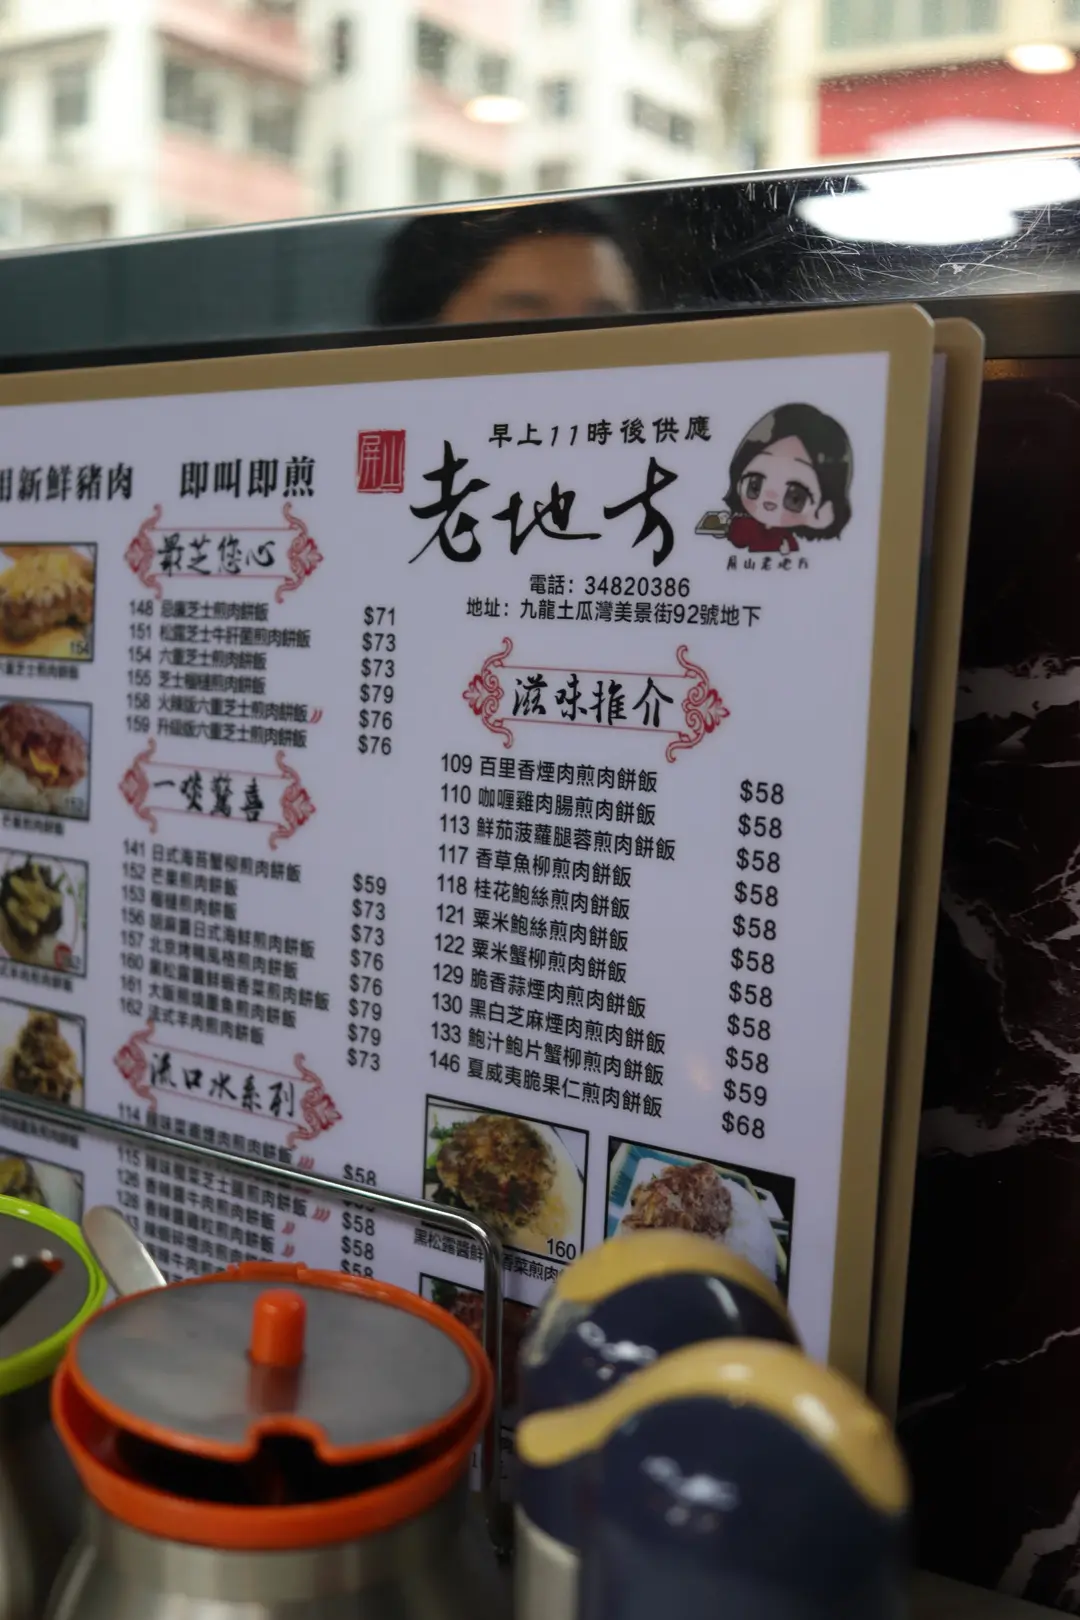 用新鮮豬肉 即叫即煎
154
最芝您心
148 忌廉芝士煎肉餅飯 $71
151 松露芝士牛肝菌煎肉餅飯 $73
154 六重芝士煎肉餅飯 $73
155 芝士榴槤煎肉餅飯 $79
158 火辣版六重芝士煎肉餅飯 $76
159 升級版六重芝士煎肉餅飯 $76
一啖驚喜
141 日式海苔蟹柳煎肉餅飯 $59
152 芒果煎肉餅飯 $73
153 榴槤煎肉餅飯 $73
156 胡麻醬日式海鮮煎肉餅飯 $76
157 北京烤鴨風格煎肉餅飯 $76
160 黑松露醬鮮蝦香菜煎肉餅飯 $79
161 大阪照燒墨魚煎肉餅飯 $79
162 法式羊肉煎肉餅飯 $73
流口水系列
114 煙肉煎肉餅飯 $58
115 芝士腸煎肉餅飯
126 香辣醬牛肉煎肉餅飯 $58
128 香辣醬雞粒煎肉餅飯 $58
$58
屏山
早上11時後供應
老地方
屏山老地方
電話：34820386
地址：九龍土瓜灣美景街92號地下
滋味推介
109 百里香煙肉煎肉餅飯 $58
110 咖喱雞肉腸煎肉餅飯 $58
113 鮮茄菠蘿腿蓉煎肉餅飯 $58
117 香草魚柳煎肉餅飯 $58
118 桂花鮑絲煎肉餅飯 $58
121 粟米鮑絲煎肉餅飯 $58
122 粟米蟹柳煎肉餅飯 $58
129 脆香蒜煙肉煎肉餅飯 $58
130 黑白芝麻煙肉煎肉餅飯 $58
133 鮑汁鮑片蟹柳煎肉餅飯 $59
146 夏威夷脆果仁煎肉餅飯 $68
160
黑松露醬鮮 香菜煎肉